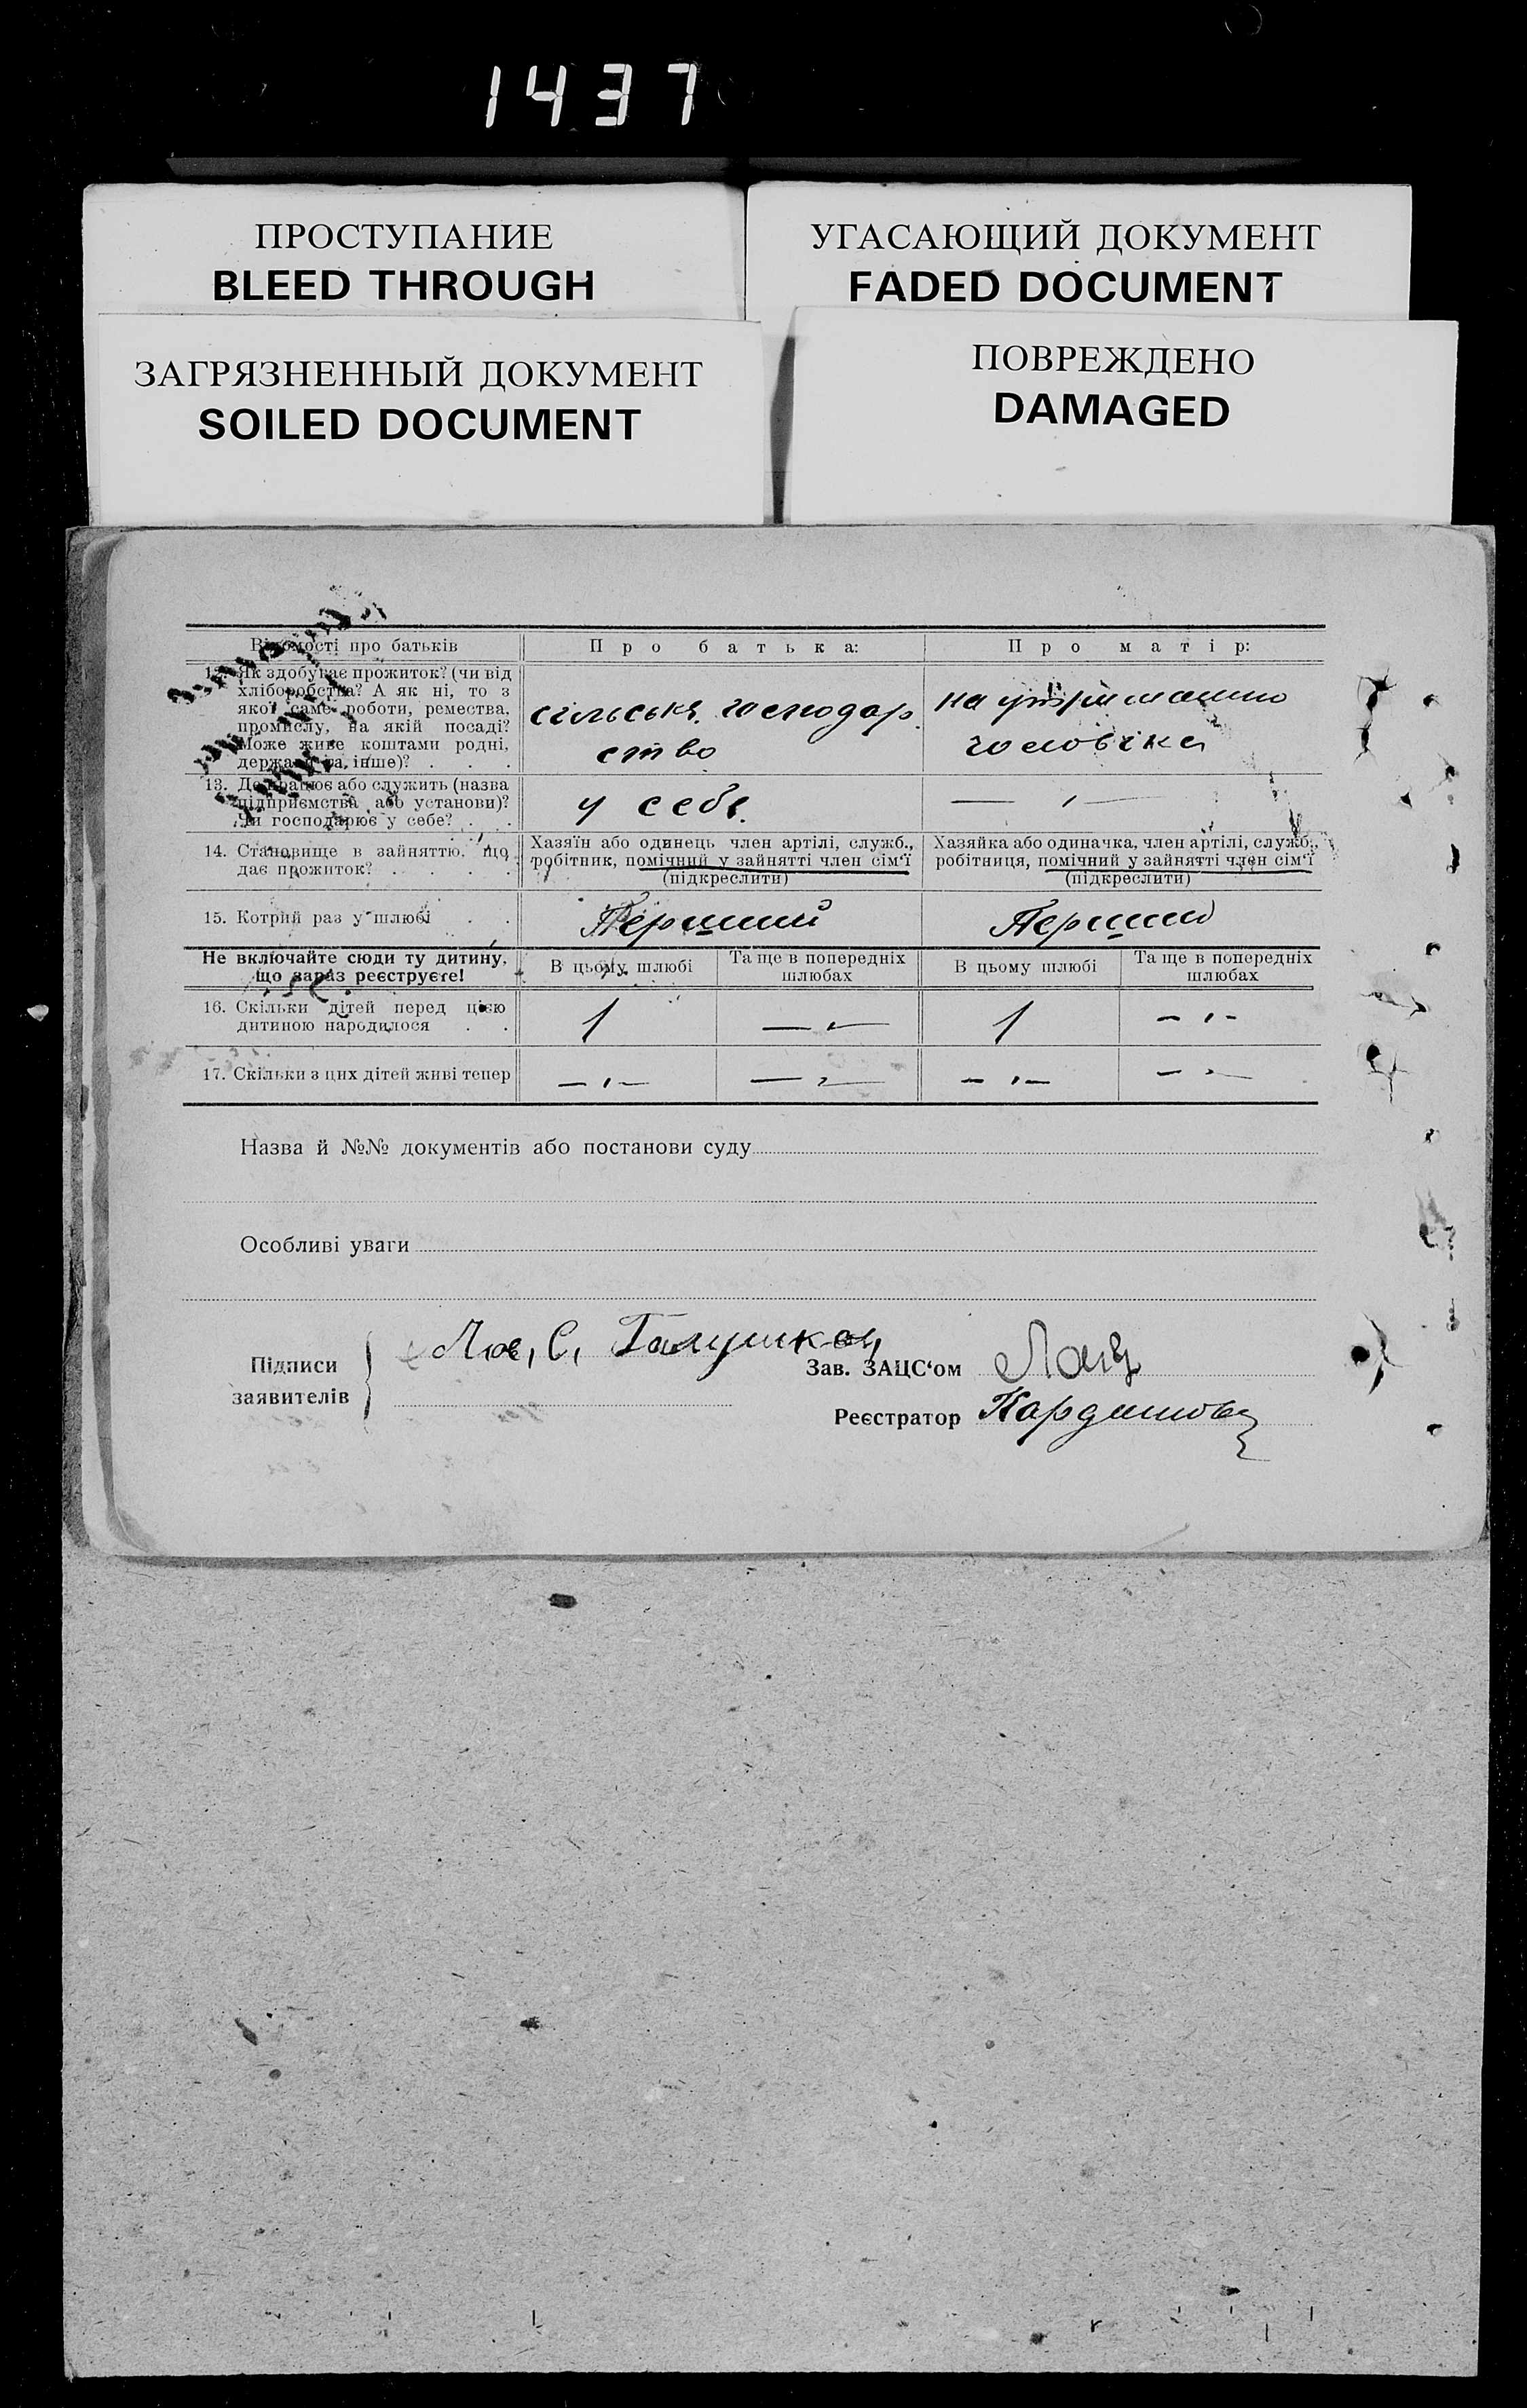 1437
ПРОСТУПАНИЕ
BLEED THROUGH
УГАСАЮЩИЙ ДОКУМЕНТ
FADED DOCUMENT
ЗАГРЯЗНЕННЫЙ ДОКУМЕНТ
SOILED DOCUMENT
ПОВРЕЖДЕНО
DAMAGED
Відомості про батьків
Про батька:
Про матір:
12. Як здобуває прожиток? (чи від
хліборобства? А як ні, то з
якої саме роботи, ремества,
промислу, на якій посаді?
Може живе коштами родні,
держави та інше)? . . .
сільське господар
ство
на утриманню
чоловіка
13. Де працює або служить (назва
підприємства або установи)?
Чи господарює у себе? . .
у себе.
14. Становище в зайняттю, що
дає прожиток? . . . . .
Хазяїн або одинець член артілі, служб.,
робітник, помічний у зайнятті член сім'ї
(підкреслити)
Хазяйка або одиначка, член артілі, служб.,
робітниця, помічний у зайнятті член сім'ї
(підкреслити)
15. Котрий раз у шлюбі . .
Перший
Перший
Не включайте сюди ту дитину,
що зараз реєструєте!
В цьому шлюбі
Та ще в попередніх
шлюбах
В цьому шлюбі
Та ще в попередніх
шлюбах
16. Скільки дітей перед цією
дитиною народилося . .
1
1
17. Скільки з цих дітей живі тепер
Назва й №№ документів або постанови суду
Особливі уваги
Підписи
заявителів
С. Галушка
Зав. ЗАЦС'ом
Реєстратор